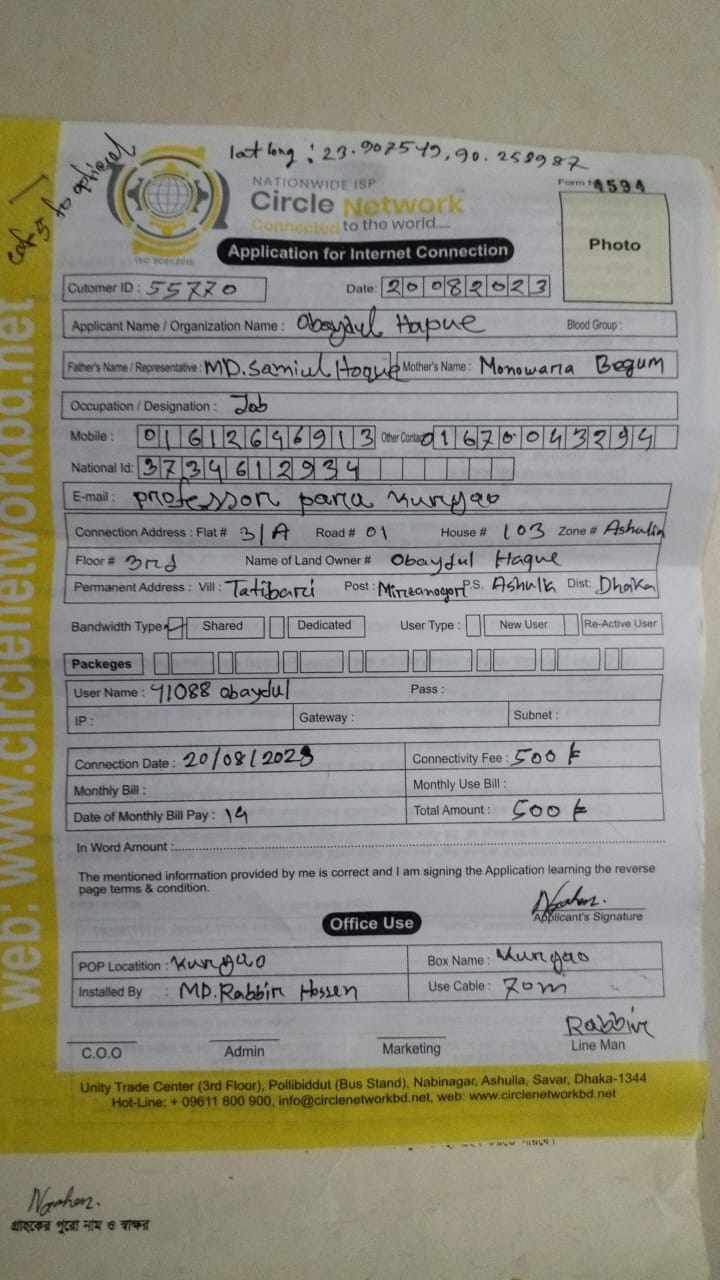 cat 5 to optical
lat long : 23.907549, 90.258987
NATIONWIDE ISP
Form N 1594
Circle Network
Connected to the world....
ISO 9001:2015
Photo
Application for Internet Connection
Cutomer ID : 55770 Date: 20082023
Applicant Name / Organization Name : Obaydul Haque Blood Group :
Father's Name / Representative : MD. Samiul Hoque Mother's Name : Monowara Begum
Occupation / Designation : Job
Mobile : 01612646913 Other Contact 01670043294
National Id: 3734612934
E-mail : professor para Kurgao
Connection Address : Flat # 3/A Road # 01 House # 103 Zone # Ashulia
Floor # 3rd Name of Land Owner # Obaydul Haque
Permanent Address : Vill : Tatibari Post : Mirzanogor P.S. Ashulia Dist: Dhaka
Bandwidth Type Shared Dedicated User Type : New User Re-Active User
Packeges
User Name : 41088 obaydul Pass :
IP : Gateway : Subnet :
Connection Date : 20/08/2023 Connectivity Fee : 500 ৳
Monthly Bill : Monthly Use Bill :
Date of Monthly Bill Pay : 14 Total Amount : 500 ৳
In Word Amount :
The mentioned information provided by me is correct and I am signing the Application learning the reverse
page terms & condition.
Applicant's Signature
Office Use
POP Locatition : Kurgao Box Name : Kurgao
Installed By : MD. Rabbir Hossen Use Cable : 70m
Rabbir
C.O.O Admin Marketing Line Man
Unity Trade Center (3rd Floor), Pollibiddut (Bus Stand), Nabinagar, Ashulia, Savar, Dhaka-1344
Hot-Line: + 09611 800 900, info@circlenetworkbd.net, web: www.circlenetworkbd.net
web: www.circlenetworkbd.net
গ্রাহকের পুরো নাম ও স্বাক্ষর